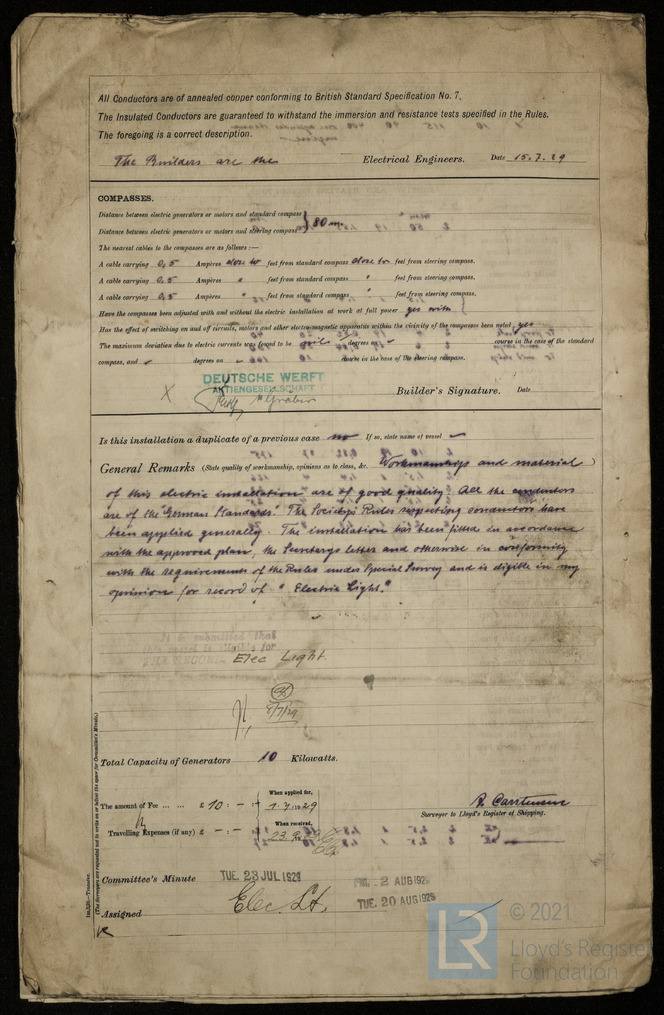 All Conductors are of annealed copper conforming to British Standard Specification No. 7.
The Insulated Conductors are guaranteed to withstand the immersion and resistance tests specified in the Rules.
The foregoing is a correct description.
The Builders are the Electrical Engineers. Date 15.7.29
COMPASSES.
Distance between electric generators or motors and standard compass
Distance between electric generators or motors and steering compass } 80 m.
The nearest cables to the compasses are as follows:—
A cable carrying 0,5 Ampères close to feet from standard compass close to feet from steering compass.
A cable carrying 0,5 Ampères " feet from standard compass " feet from steering compass.
A cable carrying 0,5 Ampères " feet from standard compass " feet from steering compass.
Have the compasses been adjusted with and without the electric installation at work at full power yes with
Has the effect of switching on and off circuits, motors and other electro-magnetic apparatus within the vicinity of the compasses been noted yes
The maximum deviation due to electric currents was found to be degrees course in the case of the standard
compass, and degrees on course in the case of the steering compass.
DEUTSCHE WERFT
AKTIENGESELLSCHAFT
Builder's Signature. Date
Is this installation a duplicate of a previous case no If so, state name of vessel
General Remarks (State quality of workmanship, opinions as to class, &c. Workmanship and material )
of this electric installation are of good quality. All the conductors
are of the "German Standards". The Society's Rules respecting conductors have
been applied generally. The installation has been fitted in accordance
with the approved plan, the Secretarys letter and otherwise in conformity
with the requirements of the Rules under Special Survey and is eligible in my
opinion for record of "Electric Light."
It is submitted that
this vessel is eligible for
THE RECORD Elec Light.
Total Capacity of Generators 10 Kilowatts.
When applied for,
The amount of Fee ... ... £ 10 : - : - 1.7.1929
When received,
Travelling Expenses (if any) £ - : - :
A. Carstensen
Surveyor to Lloyd's Register of Shipping.
Committee's Minute TUE. 23 JUL 1929 FRI. 2 AUG 1929
TUE. 20 AUG 1929
Assigned Elec. Lt.
(The Surveyors are requested not to write on or below the space for Committee's Minute.)
LR
© 2021
Lloyd's Register
Foundation